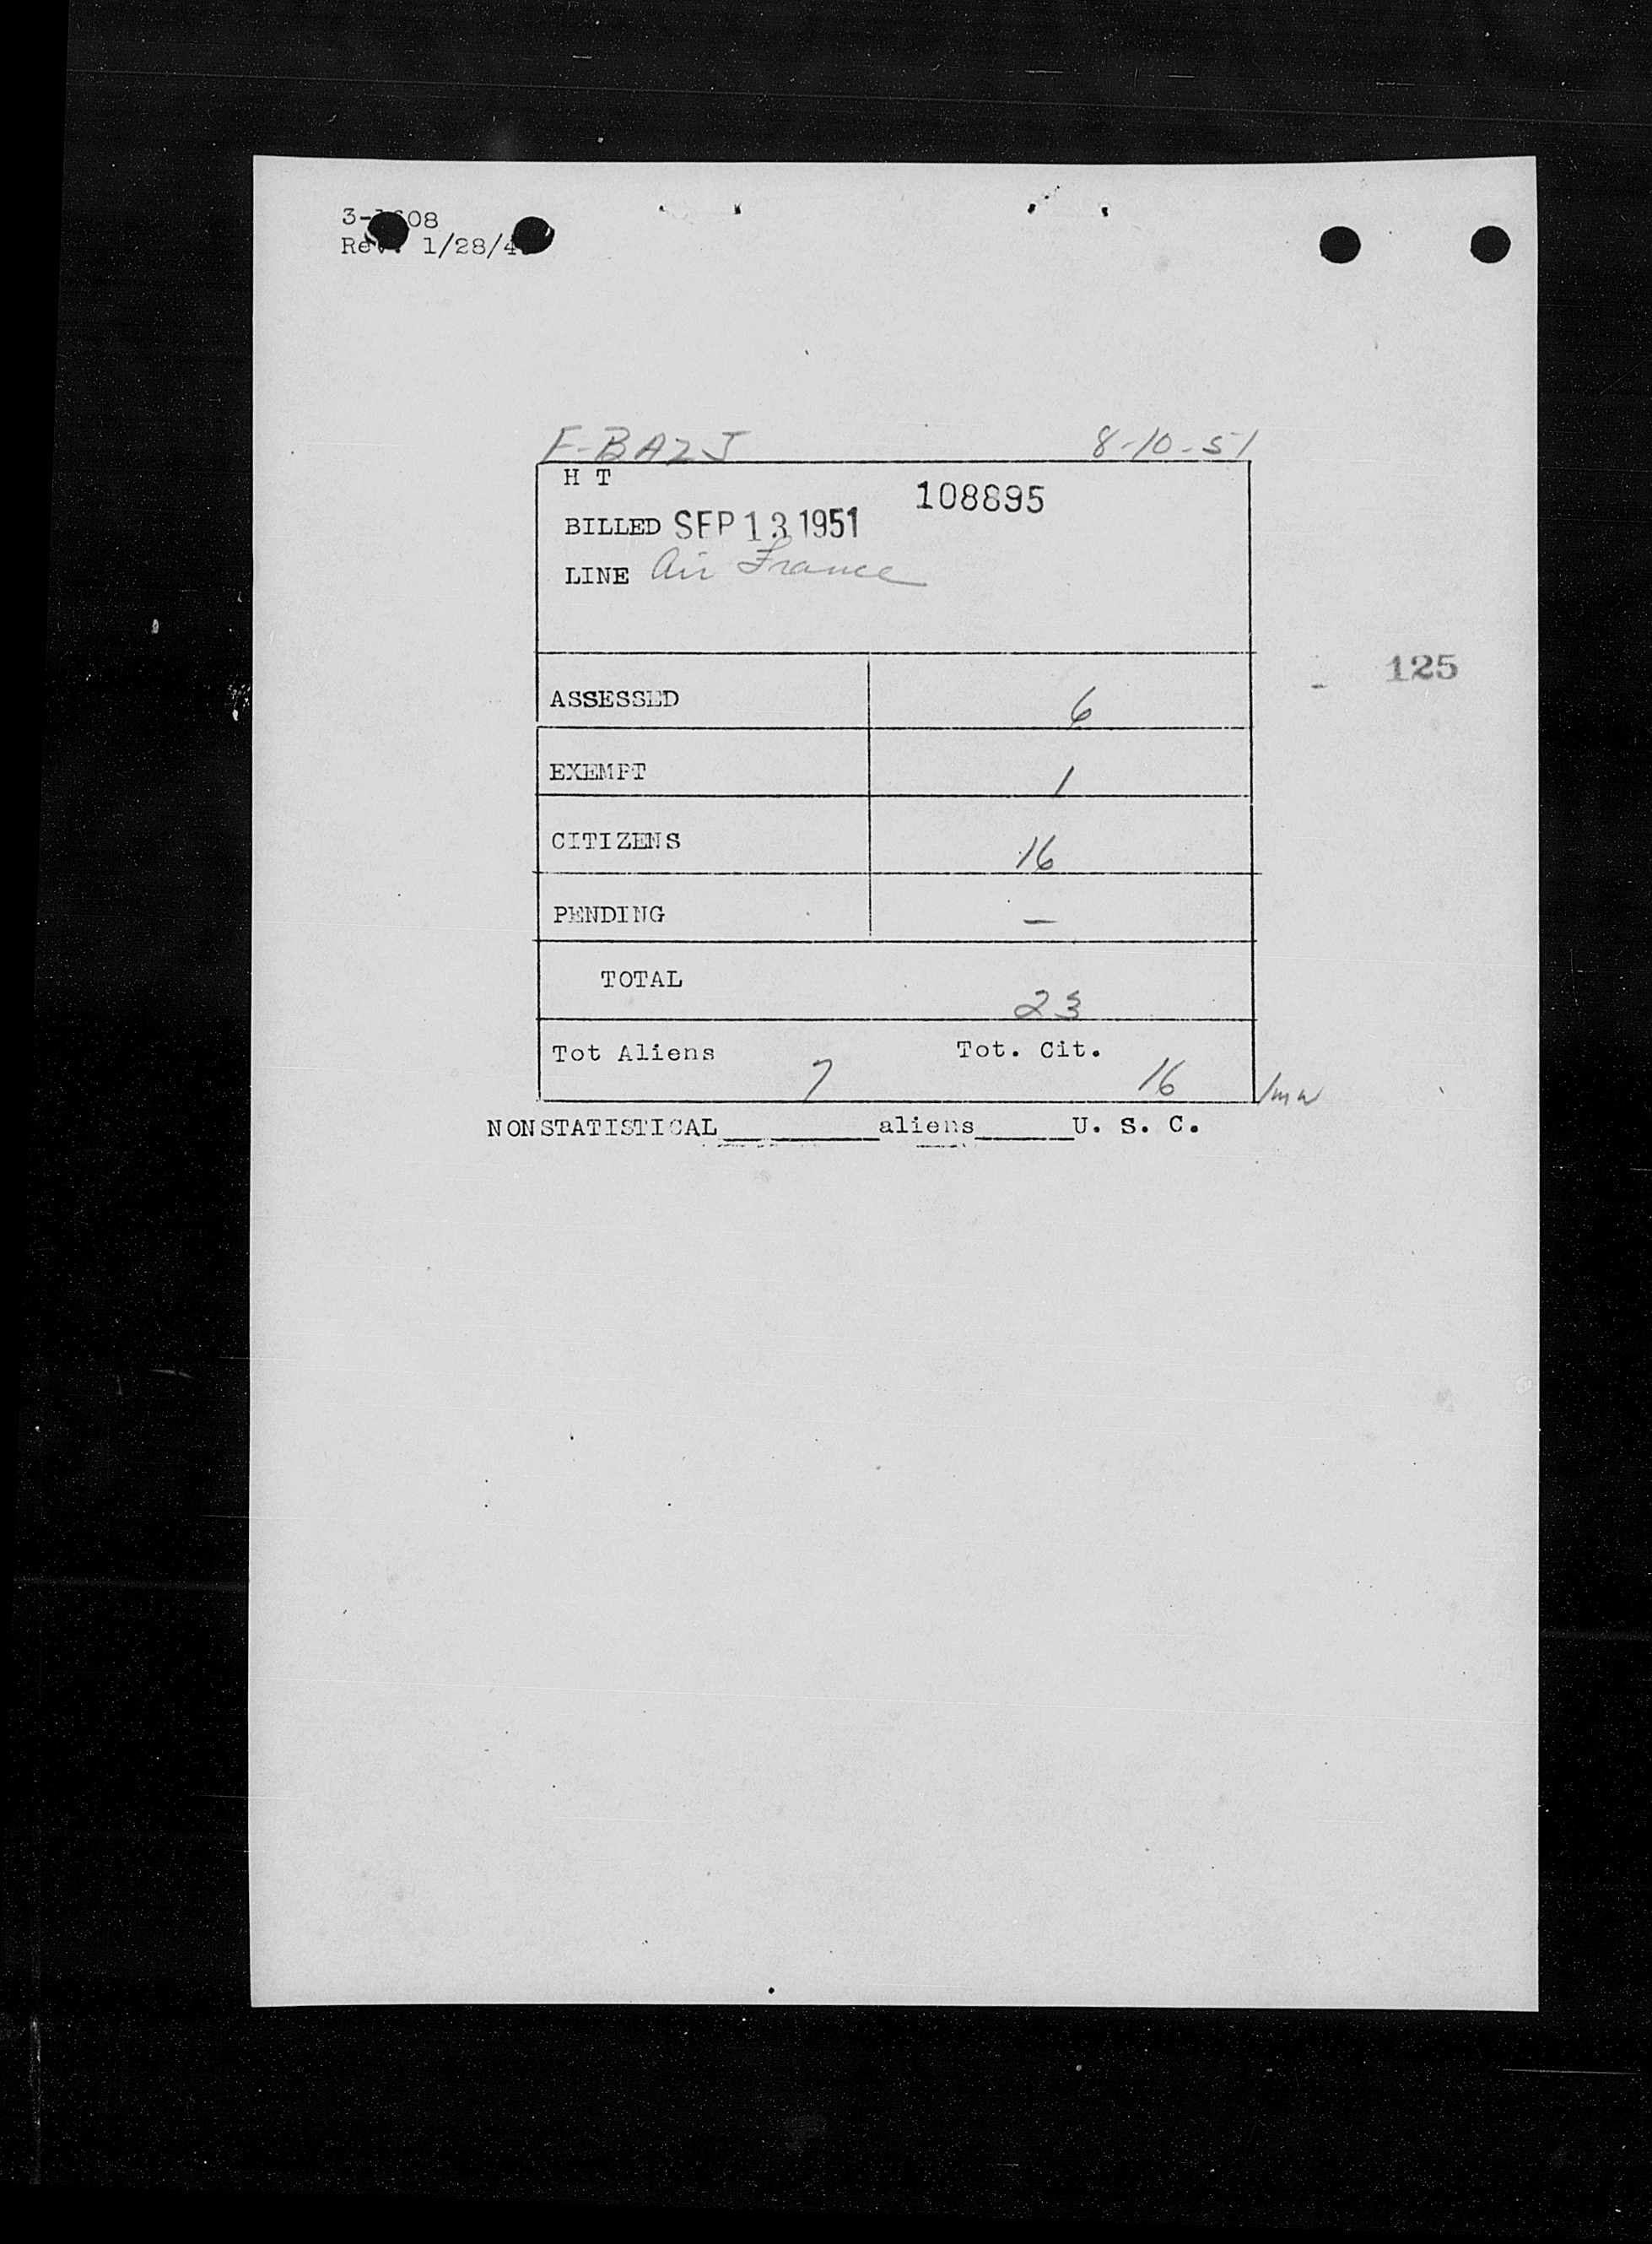 3-1608
Rev. 1/28/4
F-BAZJ 8-10-51
H T
108895
BILLED SEP 13 1951
LINE Air France
125
ASSESSED 6
EXEMPT 1
CITIZENS 16
PENDING —
TOTAL 23
Tot Aliens 7 Tot. Cit. 16
/mw
NONSTATISTICAL________aliens_____U. S. C.